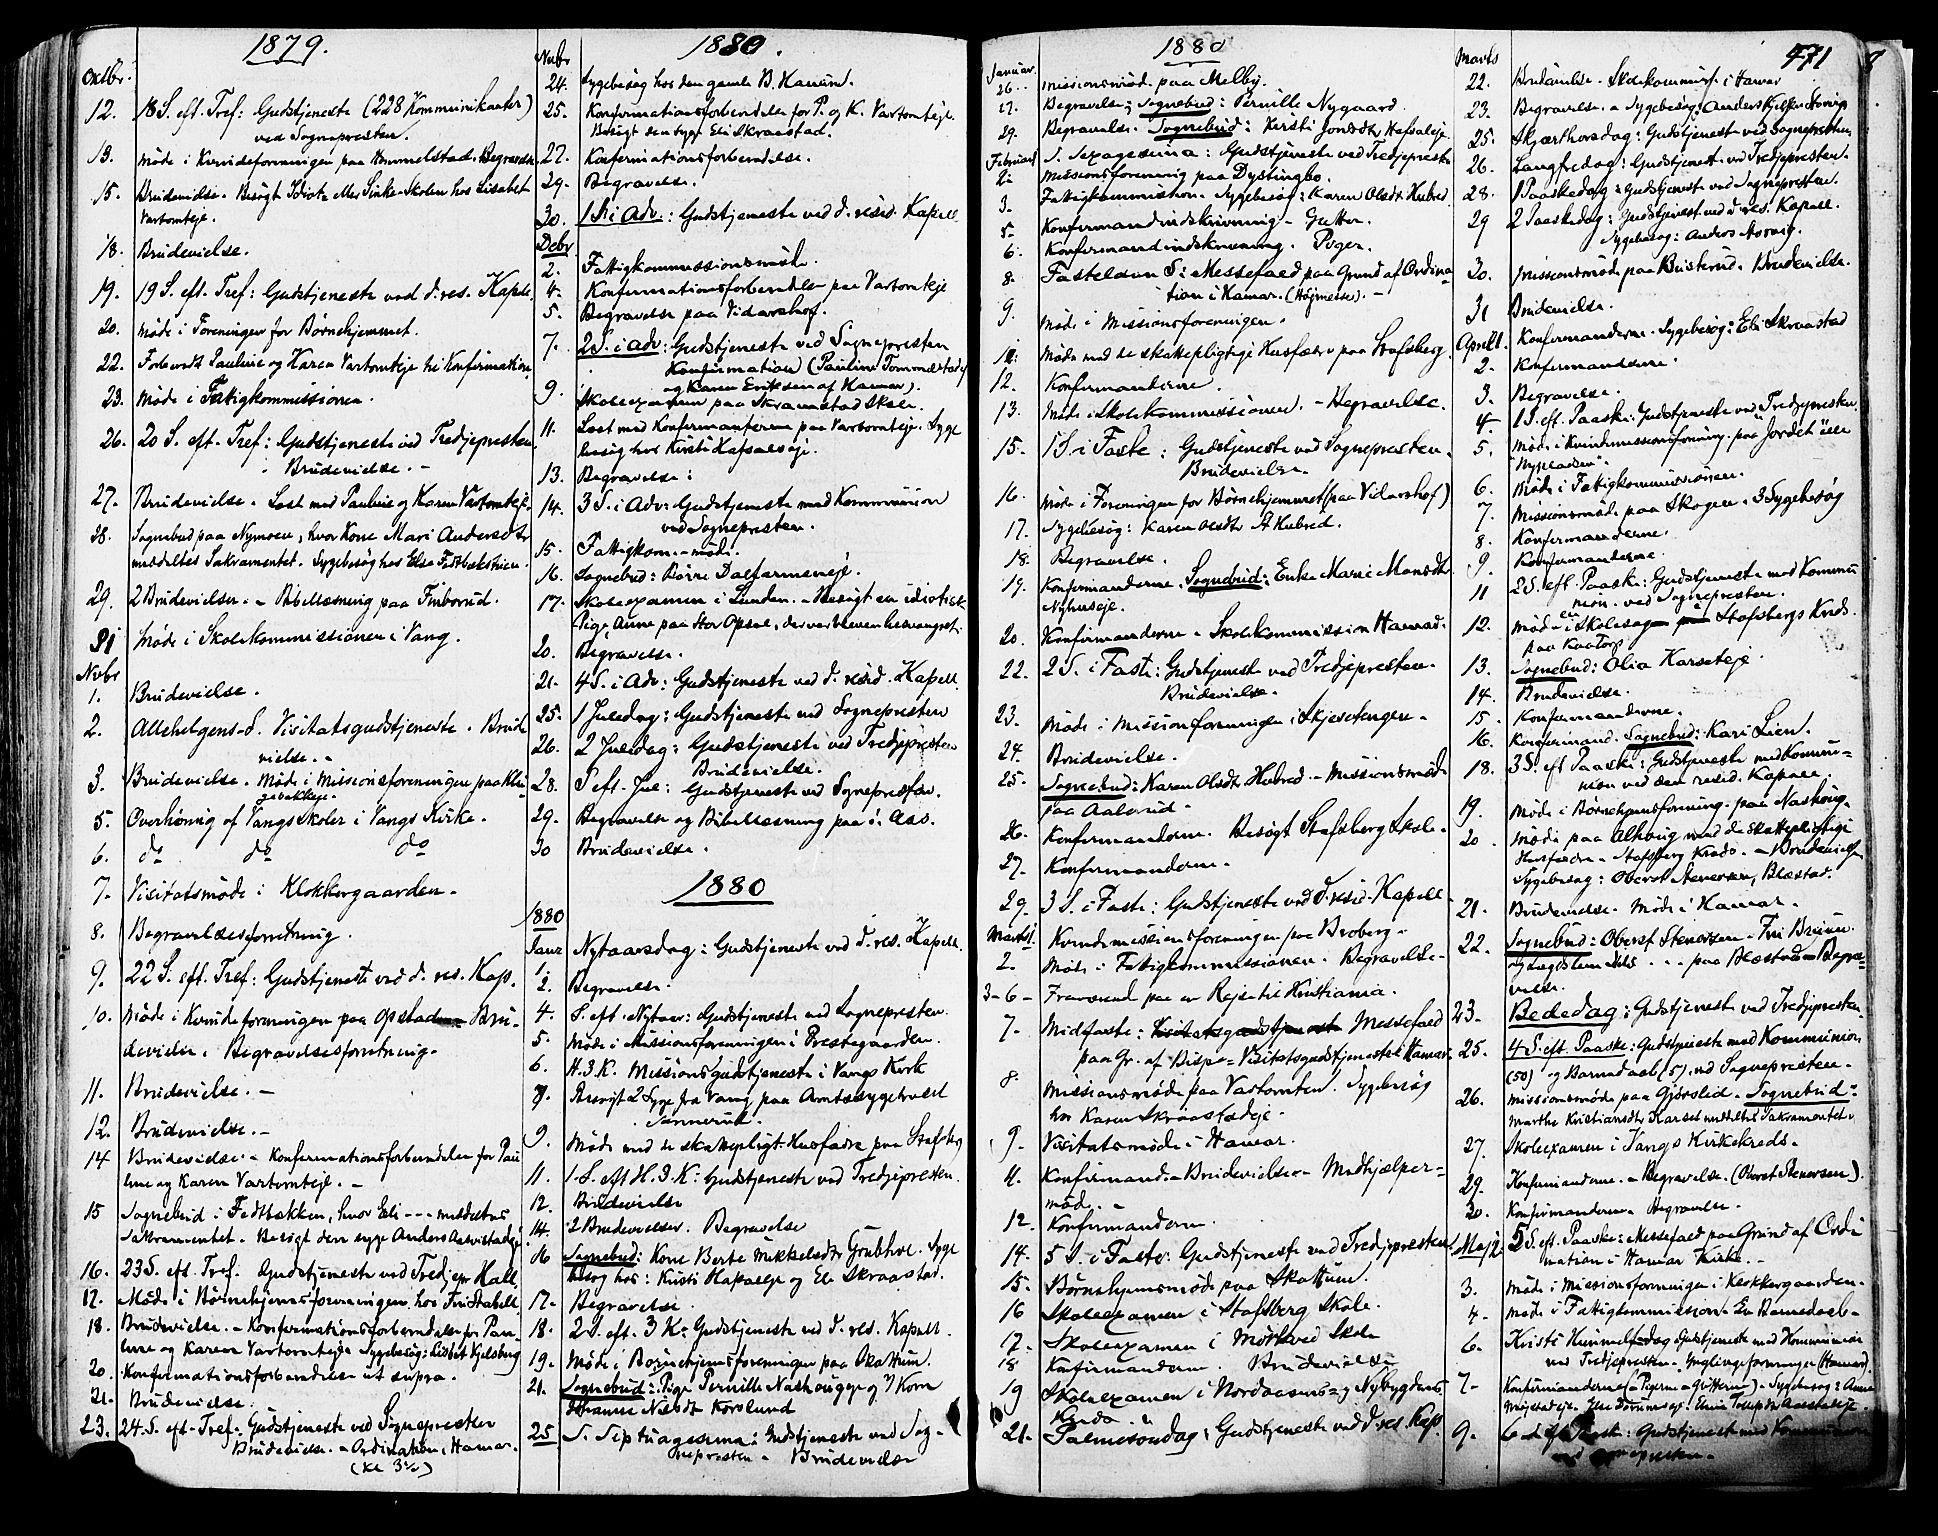 1879.
Oktbr.
12. 18 S. eft. Tref: Gudstjeneste (228 Kommunikanter)
ved Sognepresten.
13. Møde i Kvindeforeningen paa Hommelstad. Begravelse
15. Brudevielse. Besøgt Idiot eller Sinke-Skolen hos Lisabet
Vartomteje.
18. Brudevielse.
19. 19 S. eft. Tref: Gudstjeneste ved d. res. Kapel.
20. Møde i Foreningen for Børnehjemmet.
22. Forberedt Pauline og Karen Vartomteje til Konfirmation
23. Møde i Fattigkommissionen.
26. 20 S. eft. Tref: Gudstjeneste ved Tredjepresten
Brudevielse. -
27. Brudevielse. Læst med Pauline og Karen Vartomteje.
28. Sognebud paa Nymoen, hvor Kone Mari Andersdtr
meddeltes Sakramentet. Sygebesøg hos Else Fedtbækstuen.
29. 2 Brudevielser. - Bibellæsning paa Finborud.
31 Møde i Skolekommissionen i Vang.
Nvbr
1. Brudevielse.
2. Allehelgens-S. Visitatsgudstjeneste. Brude
vielse. -
3. Brudevielse. Møde i Missionsforeningen paa Klu-
gebakkeje.
5. Overhøring af Vangs Skoler i Vangs Kirke.
6. do do do
7. Visitatsmøde i Klokkergaarden.
8. Begravelsesforretning.
9. 22 S. eft. Tref: Gudstjeneste ved d. res. Kap.
10. Møde i Kvindeforeningen paa Opstad. Bru-
devielse. Begravelsesforretning.
11. Brudevielse. -
12. Brudevielse. -
14 Brudevielse. - Konfirmationsforberedelse for Pau
line og Karen Vartomteje. -
15 Sognebud i Fedtbækken, hvor Eli - - - meddeltes
Sakramentet. Besøgt den syge Anders
16. 23 S. eft. Tref. Gudstjeneste ved Tredjepr Hall
17. Møde i Børnehjemsforeningen hos Frk Stabell
18. Brudevielse. - Konfirmationsforberedelse for Pau-
line og Karen Vartomteje Sygebesøg: Lisbet Kjelsberg
20. Konfirmationsforberedelse ut supra.
21. Brudevielse.
23. 24 S. eft. Tref. Gudstjeneste ved Sognepresten
Brudevielse. - Ordination i Hamar.
(Kl 3½)
1880.
Nvbr
24. Sygebesøg hos den gamle B. Hanum.
25. Konfirmationsforberedelse for P. og K. Vartomteje.
Besøgt den syge Eli Skraastad.
27. Konfirmationsforberedelse.
29. Begravelse.
30. 1 S. i Adv.: Gudstjeneste ved d. resid. Kapell.
Dcbr
2. Fattigkommissionsmøde.
4. Konfirmationsforberedelse paa Vartomteje
5. Begravelse paa Vidarshof.
7. 2 S. i Adv: Gudstjeneste ved Sognepresten
Konfirmation (Pauline Tommestad
og Karen Eriksen af Hamar).
9. Skoleexamen paa Skramstad Skole.
11. Læst med Konfirmanterne paa Vartomteje. Syge
besøg hos Kirsti Hafsalseje.
13. Begravelse:
14. 3 S. i Adv: Gudstjeneste med Kommunion
ved Sognepresten.
15. Fattigkom.-møde.
16. Sognebud: Børre Dalfarmeneje.
17. Skoleexamen i Lunden. - Besøgt en idiotisk
Pige, Anne paa Stor Opsal, der var bleven besvangret.
20. Begravelse.
21. 4 S. i Adv: Gudstjeneste ved d. resid. Kapell.
25. 1 Juledag: Gudstjeneste ved Sognepresten
26. 2 Juledag: Gudstjeneste ved Tredjepresten
Brudevielse.
28. S. eft. Jul: Gudstjeneste ved Sognepresten.
29. Begravelse og Bibellæsning paa Aas.
30 Brudevielse.
1880
1880
Janr Nytaarsdag: Gudstjeneste ved d. res. Kapell.
1.
2. Begravelse.
4. S. eft. Nytaar: Gudstjeneste ved Sognepresten.
5. Møde i Missionsforeningen i Prestegaarden.
6. H. 3 K. Missionsgudstjeneste i Vangs Kirke
7. Besøgt 2 Syge fra Vang paa Amtssygehuset
Sannerud.
9. Møde med de skattepligt. Husfædre paa Stafsberg
11. 1 S. eft. H. 3 K: Gudstjeneste ved Tredjepresten.
12. Brudevielse
14. 2 Brudevielser. Begravelse
16 Sognebud: Kone Berte Mikkelsdtr Grubhol. Syge
besøg hos: Kirsti Hafsaleje og Eli Skraastad.
17. Begravelse.
18. 2 S. eft. 3 K: Gudstjeneste ved d. res. Kapell.
19. Møde i Børnehjemsforeningen paa Skattum.
21. Sognebud: Pige Pernille Naskougeje og Kone
Johanne Nilsdtr Korslund
25 S. Septuagesima: Gudstjeneste ved Sog-
nepresten - Brudevielse
1880
Januar.
26.. Missionsmøde paa Melby.
27. Begravelse; Sognebud: Pernille Nygaard.
29. Begravelse. Sognebud: Kirsti Jonsdtr Hafsaleje.
Februar S. Sexagesima: Gudstjeneste ved Tredjeprest.
2. Missionsforening paa Dystingbo.
3. Fattigkommission. Sygebesøg: Karen Olsdtr Hubred.
5. Konfirmandindskrivning - Gutter.
6. Konfirmandindskrivning. Piger.
8. Fastelavn S: Messefald paa Grund af Ordina
tion i Hamar. (Højmesse). -
9. Møde i Missionsforeningen.
11. Møde med de skattepligtige Husfædre paa Stafsberg.
12. Konfirmanterne.
13. Møde i Skolekommissionen. - Begravelse.
15. 1 S. i Faste: Gudstjeneste ved Sognepresten.
Brudevielse.
16. Møde i Foreningen for Børnehjemmet (paa Vidarshof)
17. Sygebesøg: Karen Olsdtr St. Hubred.
18. Begravelse.
19. Konfirmanderne. Sognebud: Enke Marie Monsdtr
Nyhuseje.
20. Konfirmanderne. Skolekommission Hamar.
22. 2 S. i Faste: Gudstjeneste ved Tredjepresten.
Brudevielse.
23. Møde i Missionsforeningen i Skjesetengen.
24. Brudevielse.
25. Sognebud: Karen Olsdtr Hubred - Missionsmøde
paa Aalerud -
26. Konfirmanderne. Besøgt Stafsberg Skole.
27. Konfirmanderne.
29. 3 S. i Faste: Gudstjeneste ved d. resid. Kapell
Marts 1. Kvindemissionsforeningen paa Broberg.
2. Møde i Fattigkommissionen. Begravelse.
3-6 - Fraværende paa en Rejse til Kristiania.
7. Midfaste: Visitatsgudstjeneste Messefald
paa Gr. af Bispe-Visitatsgudstjeneste i Hamar.
8. Missionsmøde paa Vartomten. Sygebesøg
hos Karen Skraastadeje.
9. Visitatsmøde i Hamar.
11. Konfirmand. - Brudevielse - Medhjælper-
møde. -
12. Konfirmanderne.
14. 5 S. i Faste: Gudstjeneste ved Tredjepresten
15. Børnehjemsmøde paa Skattum.
16 Skoleexamen i Stafsberg Skole.
17. Skoleexamen i Mørkved Skole
18 Konfirmanderne. Brudevielse
19 Skoleexamen i Nordaasens og Nybygdens
Kreds.
21. Palmesøndag: Gudstjeneste ved d. res. Kap.
471
Marts
22. Brudevielse. Skolekommiss. i Hamar
23. Begravelse. - Sygebesøg: Anders Kjelsen Storvig
25. Skjærthorsdag: Gudstjeneste ved Sognepresten
26. Langfredag: Gudstjenest. ved Tredjepresten.
28. 1 Paaskedag: Gudstjeneste ved Sognepresten.
29 2 Paaskedag: Gudstjenest ved d. res. Kapell.
Sygebesøg: Anders Storvig.
30. Missionsmøde paa Busterud. Brudevielse.
31 Brudevielse.
April 1. Konfirmanderne. Sygebesøg: Eli Skraastad
2. Konfirmanderne.
3. Begravelse.
4. 1 S. eft. Paaske: Gudstjeneste ved Tredjepresten.
5. Møde i Kvindemissionsforening paa Jordet
"Nypladsen".
6. Møde i Fattigkommissionen.
7. Missionsmøde paa Skogen. 3 Sygebesøg
8. Konfirmanderne.
9. Konfirmanderne.
11 2 S. eft. Paaske: Gudstjeneste med Kommu
nion ved Sognepresten.
12. Møde i en Skolesag Stafsbergs Kreds.
paa Kaatorp
13. Sognebud: Olia Karseteje.
14. Brudevielse.
15. Konfirmanderne.
16. Konfirmand. Sognebud: Kari Lien.
18. 3 S. eft Paaske: Gudstjeneste med Kommu-
nion ved den resid. Kapell.
19. Møde i Børnehjemsforening paa Naskoug.
20 Møde paa Alhaug med de skattepligtige
Husfædre - Stafsberg Kreds. - Brudevielse
Sygebesøg: Oberst Stenersen, Blæstad.
21. Brudevielse. Møde i Hamar.
22. Sognebud: Oberst Stenersen - Fru Bruun
paa Blæstad - Begra-
velse.
23. Bededag: Gudstjeneste ved Tredjepresten.
25. 4 S. eft. Paaske: Gudstjeneste med Kommunion
(50) og Barnedaab (5) ved Sognepresten.
26. Missionsmøde paa Gjørslid. Sognebud:
Marthe Kristiansdtr Karset meddeltes Sakramentet.
27. Skoleexamen i Vangs Kirkekreds.
29. Konfirmanderne. - Begravelse. (Oberst Stenersen).
30. Konfirmanderne. Begravelse.
Maj 2. 5 S. eft. Paaske: Messefald paa Grund af Ordi
nation i Hamar Kirke. -
3. Møde i Missionsforeningen i Klokkergaarden.
4. Møde i Fattigkommission. En Barnedaab.
6. Kristi Himmelf.dag Gudstjeneste med Kommunion
ved Tredjepresten. Ynglingeforeningen (Hamar).
7. Konfirmanderne (Pigerne - Gutterne). - Sygebesøg: Anne
9. 6 S. eft. Paask: Gudstjeneste med Kommunion
ved Sognepresten.